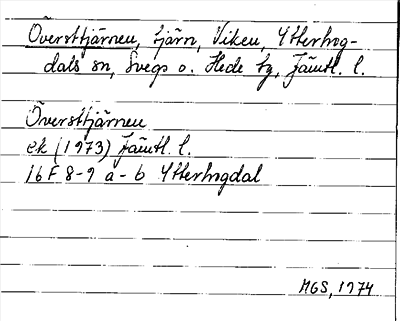 Översttjärnen, tjärn, Viken, Ytterhog-
dals sn, Svegs o. Hede tg, Jämtl. l.
Översttjärnen
ek (1973) Jämtl. l.
16F 8-9 a-b Ytterhogdal
MGS, 1974